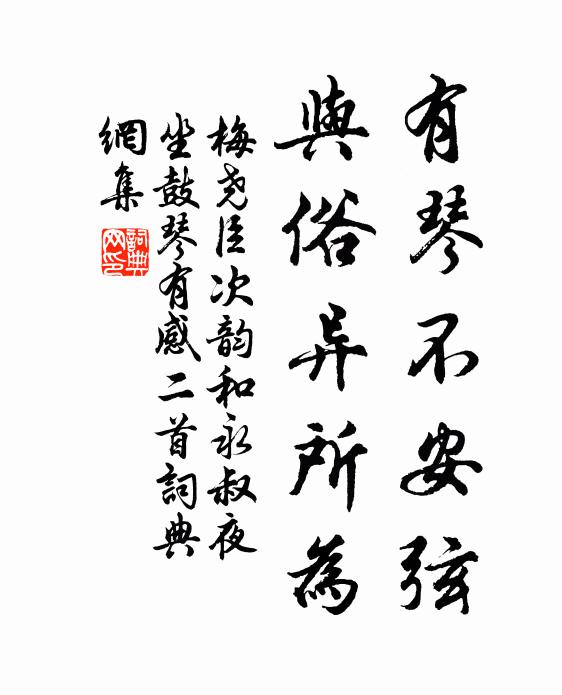 有琴不安弦
與俗异所為
梅尧臣次韵和永叔夜
坐鼓琴有感二首詞典
網集
詞典
网印